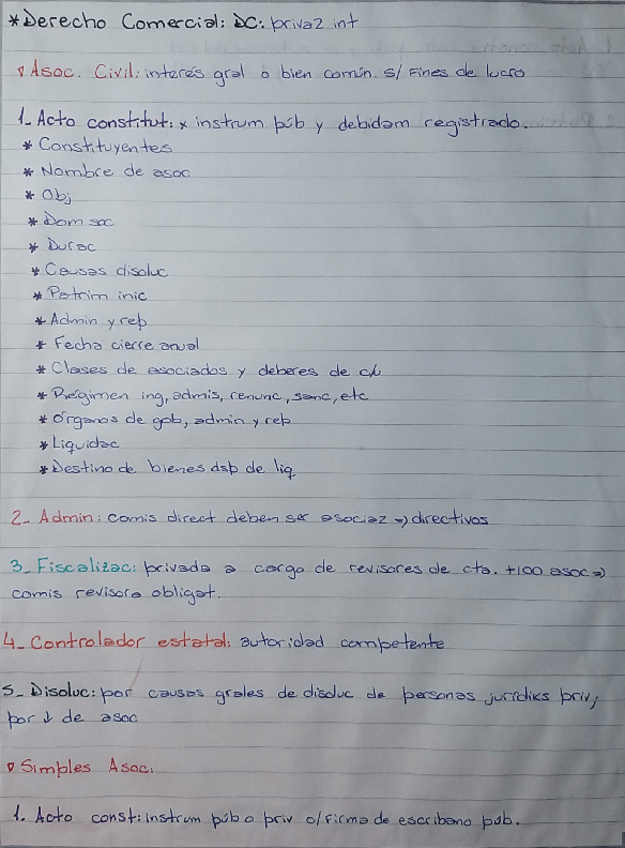 *Derecho Comercial: DC: priva2 int
Asoc. Civil: interés gral o bien común. s/ Fines de lucro
1_ Acto constitut: x instrum púb y debidam registrado.
* Constituyentes
* Nombre de asoc
* Obj
* Dom soc
* Durac
* Causas disoluc
* Patrim inic
* Admin y rep
* Fecha cierre anual
* Clases de asociados y deberes de c/u
* Régimen ing, admis, renunc, sanc, etc
* Órganos de gob, admin y rep
* Liquidac
* Destino de bienes dsp de liq
2_ Admin: comis direct deben ser asocia2 => directivos
3_ Fiscalizac: privada a cargo de revisores de cta. +100 asoc =>
comis revisora obligat.
4_ Controlador estatal: autoridad competente
5_ Disoluc: por causas grales de disoluc de personas jurídiks priv;
por ↓ de asoc
Simples Asoc:
1. Acto const: instrum púb o priv c/ firma de escribano púb.